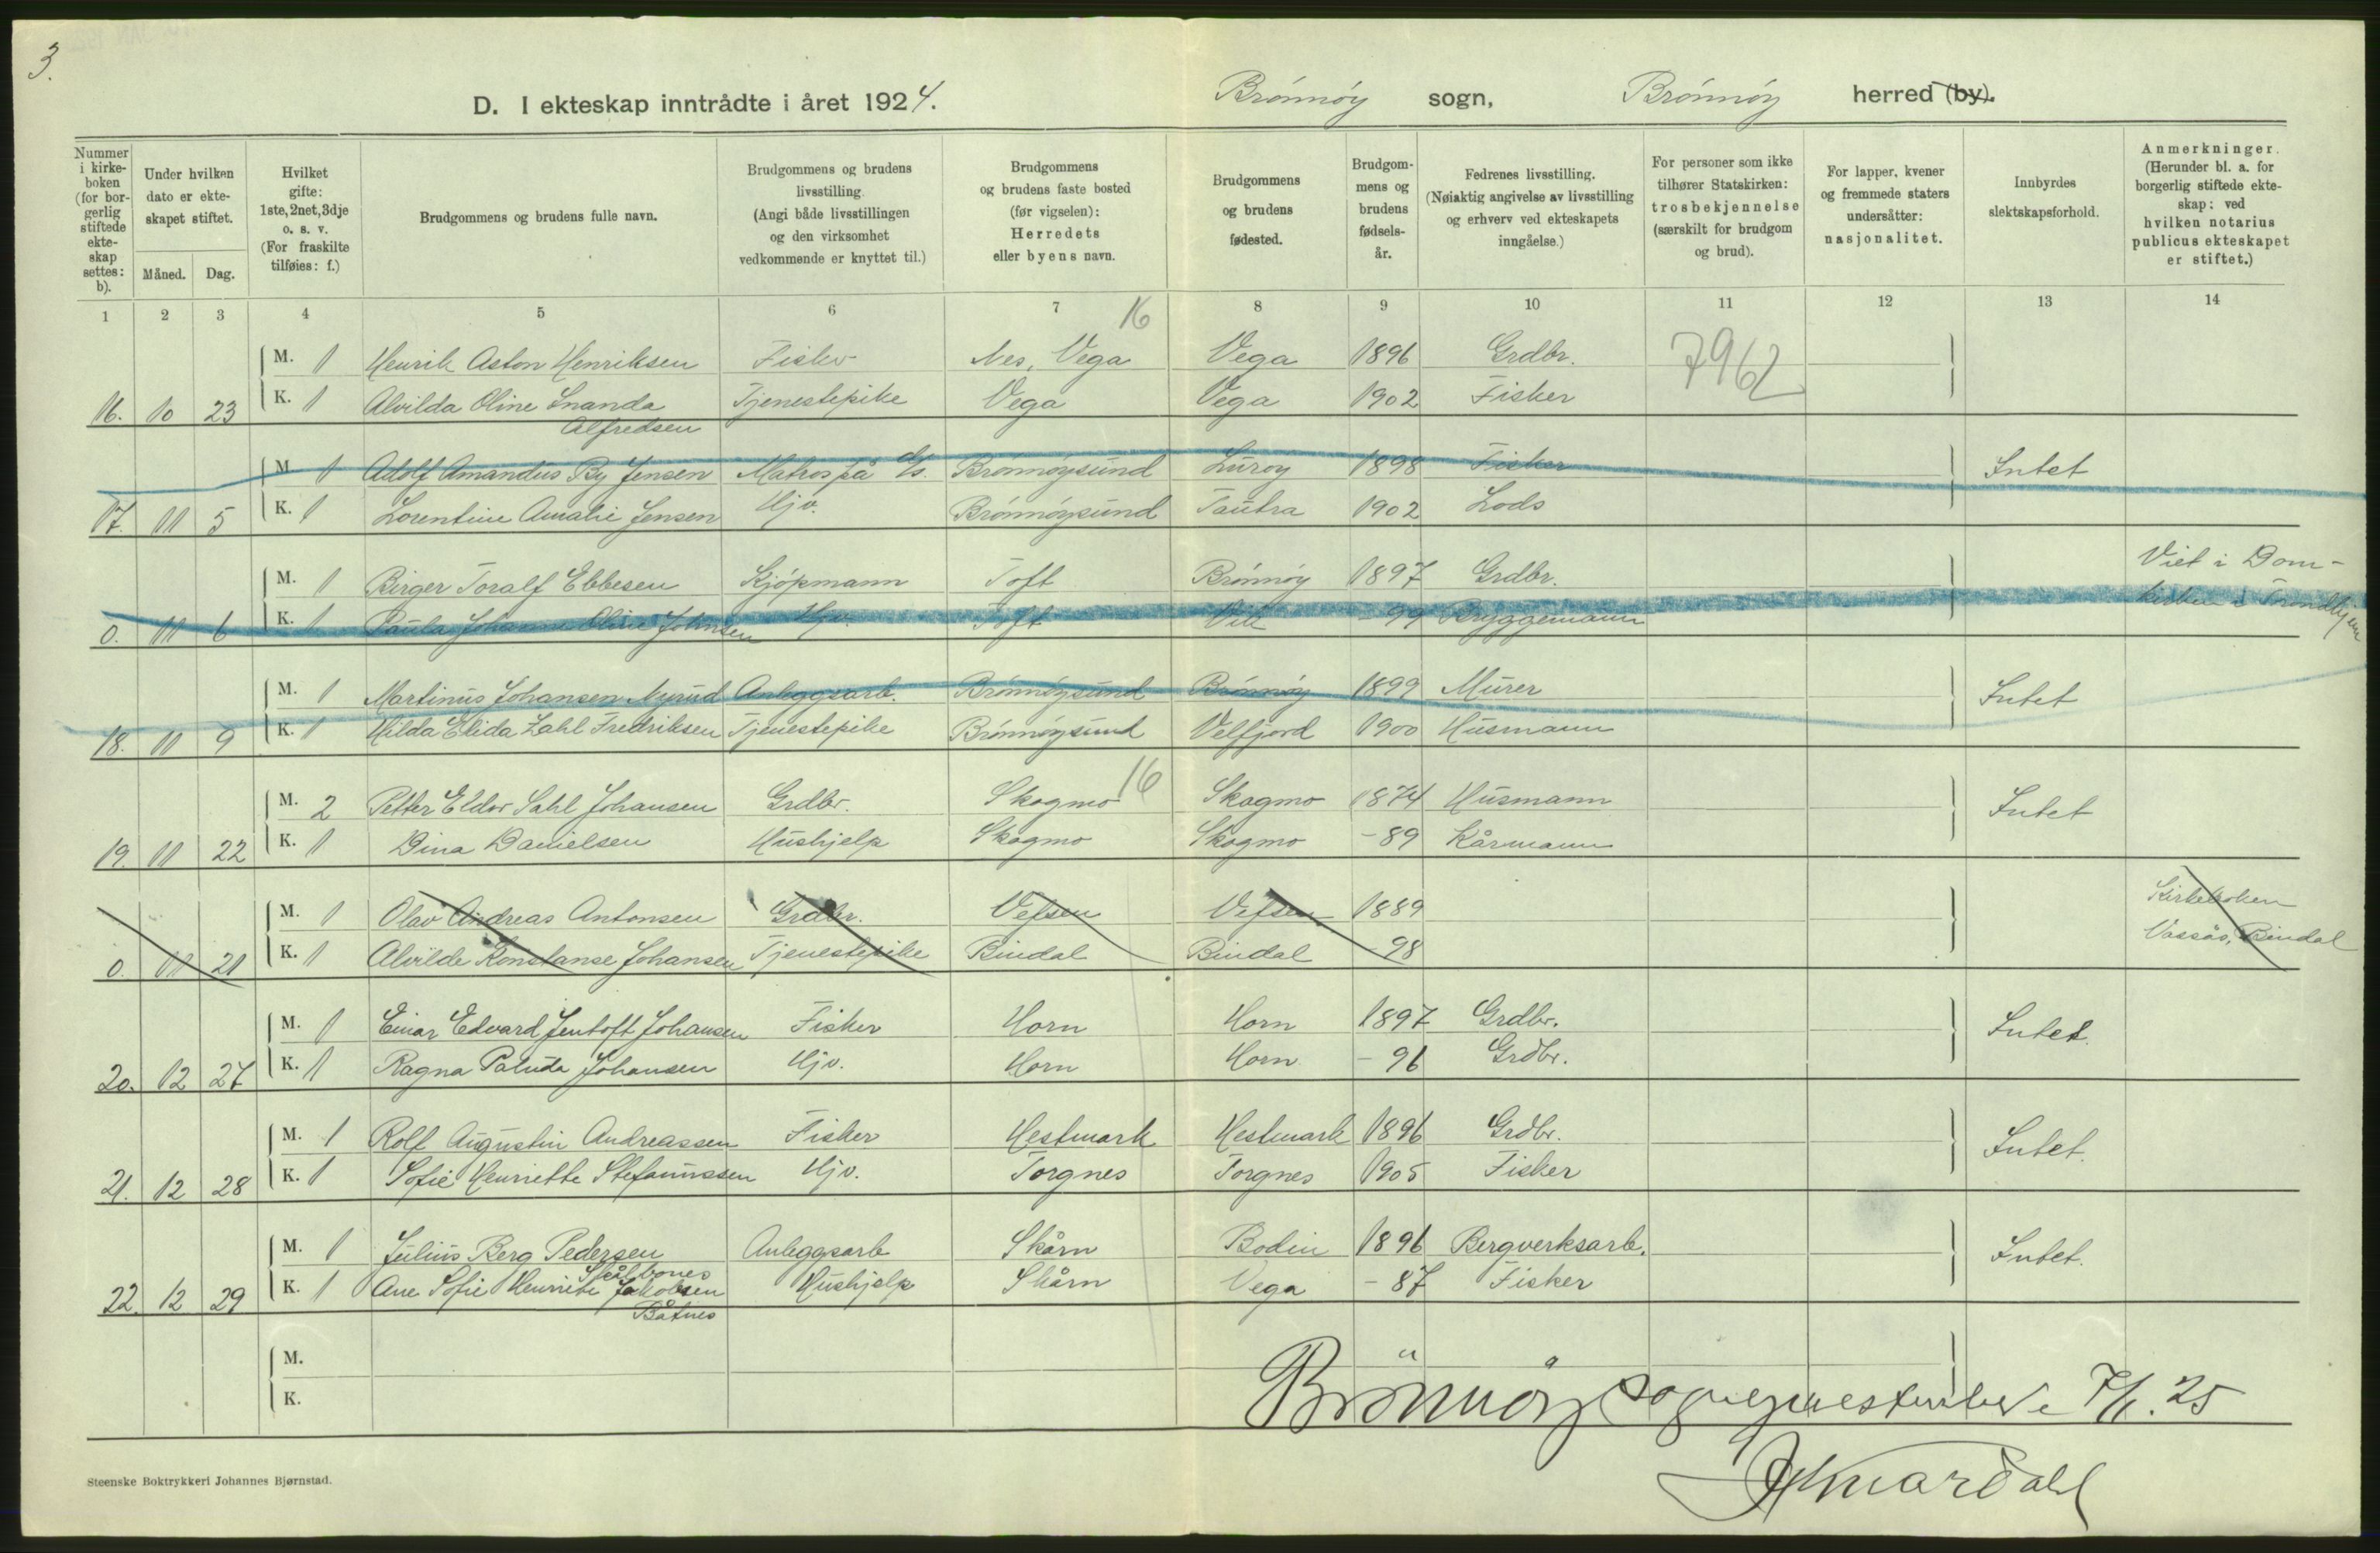 3.
D. I ekteskap inntrådte i året 1924.
Brönnöy sogn, Brönnöy herred (by).
Nummer i kirke-boken (for bor-gerlig stiftede ekte-skap settes: b).
Under hvilken dato er ekte-skapet stiftet.
Måned. Dag.
Hvilket gifte: 1ste, 2net, 3dje o. s. v. (For fraskilte tilføies: f.)
Brudgommens og brudens fulle navn.
Brudgommens og brudens livsstilling. (Angi både livsstillingen og den virksomhet vedkommende er knyttet til.)
Brudgommens og brudens faste bosted (før vigselen): Herredets eller byens navn.
Brudgommens og brudens fødested.
Brudgom-mens og brudens fødsels-år.
Fedrenes livsstilling. (Nøiaktig angivelse av livsstilling og erhverv ved ekteskapets inngåelse.)
For personer som ikke tilhører Statskirken: trosbekjennelse (særskilt for brudgom og brud).
For lapper, kvener og fremmede staters undersåtter: nasjonalitet.
Innbyrdes slektskapsforhold.
Anmerkninger. (Herunder bl. a. for borgerlig stiftede ekte-skap: ved hvilken notarius publicus ekteskapet er stiftet.)
1 2 3 4 5 6 7 8 9 10 11 12 13 14
16
M. 1 Henrik Aston Henriksen Fisker Nes, Vega Vega 1896 Grdbr. 7962
16. 10 23 K. 1 Alvilda Oline Inanda Tjenestepike Vega Vega 1902 Fisker
Alfredsen
M. 1 Adolf Amandus By Jensen Matros på d/s. Brönnöysund Luröy 1898 Fisker Intet
17. 11 5 K. 1 Lorentine Amalie Jensen Hjv. Brönnöysund Tautra 1902 Lods
M. 1 Birger Toralf Ebbesen Kjöpmann Toft Brönnöy 1897 Grdbr. Viet i Dom-
0. 11 6 K. 1 Paula Johanne Oline Johnsen Hjv. Toft - 99 Bryggemann kirken i Trondhjem
M. 1 Martinus Johansen Nyrud Anleggsarb. Brönnöysund Brönnöy 1899 Murer Intet
18. 11 9 K. 1 Hilda Elida Zahl Fredriksen Tjenestepike Brönnöysund Velfjord 1900 Husmann
16
M. 2 Petter Eldor Sahl Johansen Grdbr. Skogmo Skogmo 1874 Husmann Intet
19. 11 22 K. 1 Dina Danielsen Hushjelp Skogmo Skogmo - 89 Kårmann
M. 1 Olav Andreas Antonsen Grdbr. Vefsen Vefsen 1889 Kirkeboken
0. 11 21 K. 1 Alvilde Konstanse Johansen Tjenestepike Bindal Bindal 98 Vassås, Bindal
M. 1 Einar Edvard Jentoft Johansen Fisker Horn Horn 1897 Grdbr. Intet.
20. 12 27 K. 1 Ragna Paluda Johansen Hjv. Horn Horn - 96 Grdbr.
M. 1 Rolf Augustin Andreassen Fisker Hestmark Hestmark 1896 Grdbr. Intet.
21. 12 28 K. 1 Sofie Henriette Stefanussen Hjv. Torgnes Torgnes 1905 Fisker
M. 1 Julius Berg Pedersen Anleggsarb Skårn Bodin 1896 Bergverksarb. Intet.
Skålbones
22. 12 29 K. 1 Ane Sofie Henriette Jakobsen Hushjelp Skårn Vega - 87 Fisker
Båtnes
M.
K.
Brönnöy sogneprestembede 7/1. 25
Steenske Boktrykkeri Johannes Bjørnstad.